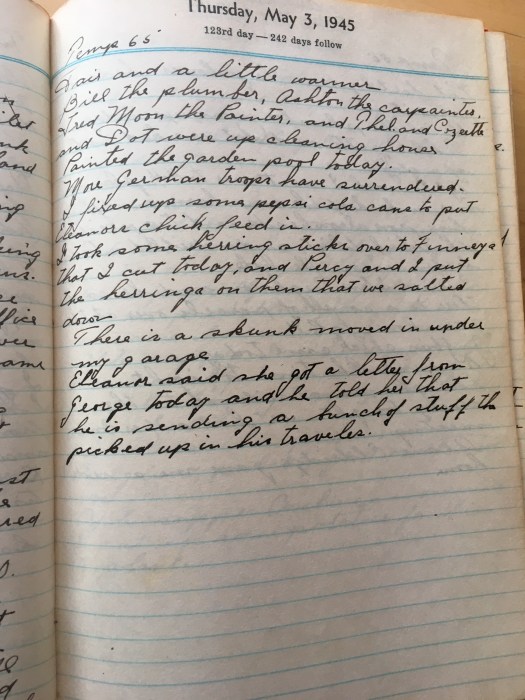 Thursday, May 3, 1945
123rd day — 242 days follow
Temp 65°
Fair and a little warmer
Bill the plumber, Ashton the carpainter,
Fred Moon the Painter, and Thel. and Cozette
and Dot were up cleaning house
Painted the garden pool today.
More German troops have surrendered.
I fixed up some pepsi cola cans to put
Eleanors chick feed in.
I took some herring sticks over to Finneys
that I cut today, and Percy and I put
the herrings on them that we salted
down
There is a skunk moved in under
my garage
Eleanor said she got a letter from
George today and he told her that
he is sending a bunch of stuff th
picked up in his traveles.